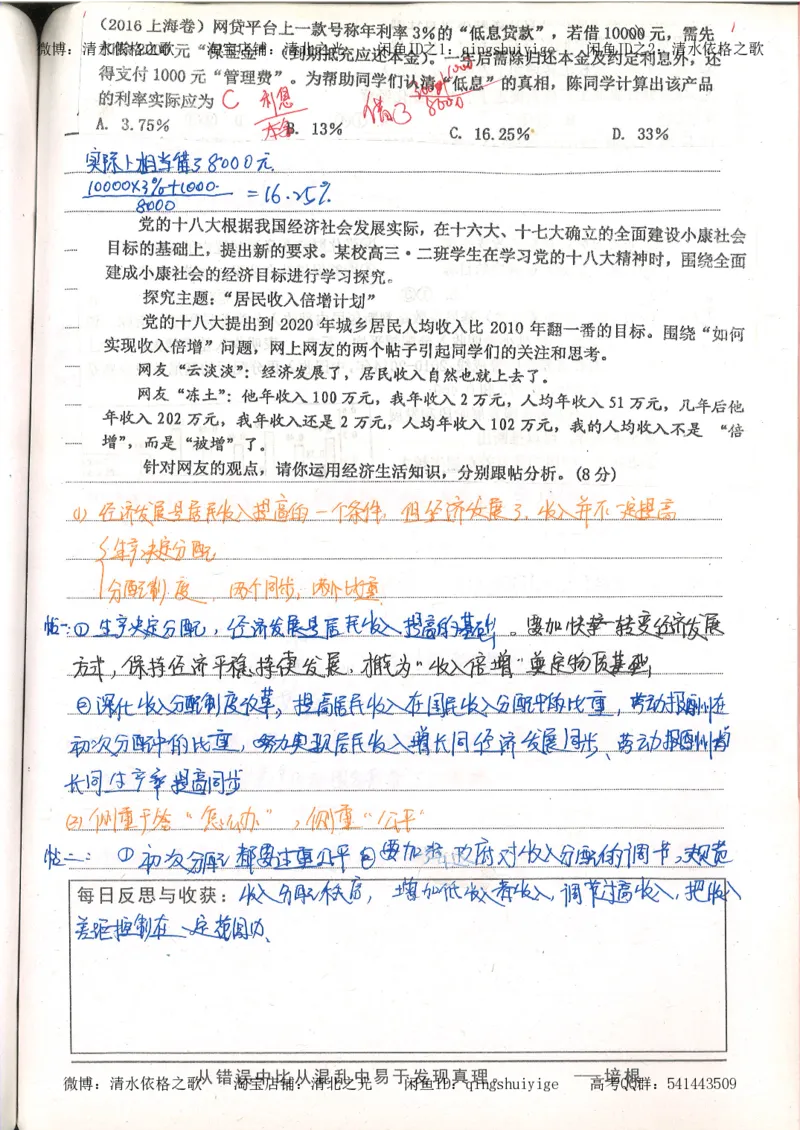 (2016 上海卷) 网贷平台上一款号称年利率 3%的“低息贷款”，若借 10000 元，需先
微博：清水依格之歌 淘宝店铺：清北之光 闲鱼ID之1：qingshuiyige 闲鱼ID之2：清水依格之歌
2000 元“保证金”(到期抵充应还本金)。一年后需除归还本金及约定利息外，还
得支付 1000 元“管理费”。为帮助同学们认清“低息”的真相，陈同学计算出该产品
的利率实际应为 C 利息 借了 8000
本金
A. 3.75% B. 13% C. 16.25% D. 33%
实际上相当借了8000元.
10000×3%+1000
8000 =16.25%
党的十八大根据我国经济社会发展实际，在十六大、十七大确立的全面建设小康社会
目标的基础上，提出新的要求。某校高三·二班学生在学习党的十八大精神时，围绕全面
建成小康社会的经济目标进行学习探究。
探究主题：“居民收入倍增计划”
党的十八大提出到 2020 年城乡居民人均收入比 2010 年翻一番的目标。围绕“如何
实现收入倍增”问题，网上网友的两个帖子引起同学们的关注和思考。
网友“云淡淡”：经济发展了，居民收入自然也就上去了。
网友“冻土”：他年收入 100 万元，我年收入 2 万元，人均年收入 51 万元，几年后他
年收入 202 万元，我年收入还是 2 万元，人均收入 102 万元，我的人均收入不是 “倍
增”，而是“被增”了。
针对网友的观点，请你运用经济生活知识，分别跟帖分析。(8 分)
(1) 经济发展是居民收入提高的一个条件，但经济发展了，收入并不一定提高
生产决定分配
分配制度，两个同步，两个比重
帖一：① 生产决定分配，经济发展是居民收入提高的基础。要加快转变经济发展
方式，保持经济平稳持续发展，推为“收入倍增”奠定物质基础；
②深化收入分配制度改革，提高居民收入在国民收入分配中的比重，劳动报酬在
初次分配中的比重，努力实现居民收入增长同经济发展同步、劳动报酬增
长同生产率提高同步
(2) 侧重于答“怎么办”，侧重“公平”
帖二：① 初次分配都要注重公平 ②要加强政府对收入分配的调节，规范
每日反思与收获：收入分配秩序，增加低收入者收入，调节过高收入，把收入
差距控制在一定范围内.
从错误中比从混乱中易于发现真理。 ——培根
微博：清水依格之歌 淘宝店铺：清北之光 闲鱼ID：qingshuiyige 高考QQ群：541443509